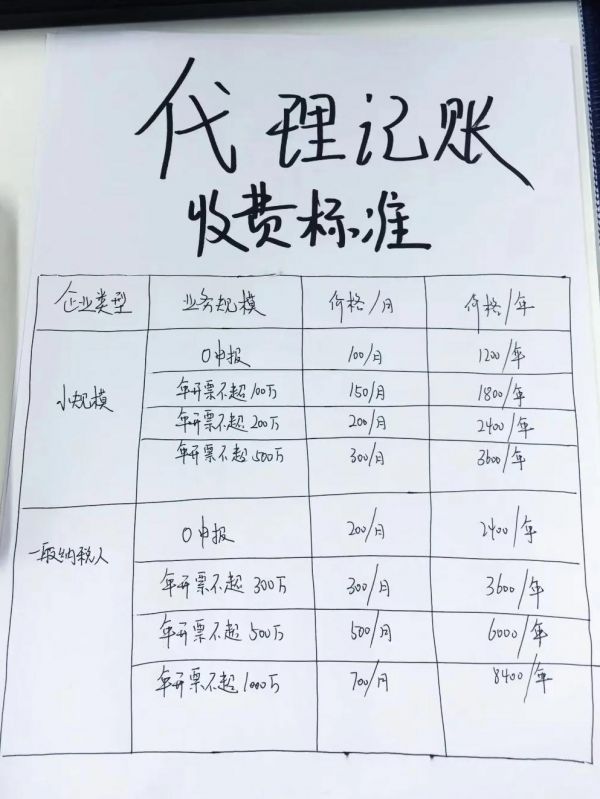 代理记账
收费标准
企业类型 业务规模 价格/月 价格/年
小规模 0申报 100/月 1200/年
年开票不超100万 150/月 1800/年
年开票不超200万 200/月 2400/年
年开票不超500万 300/月 3600/年
一般纳税人 0申报 200/月 2400/年
年开票不超300万 300/月 3600/年
年开票不超500万 500/月 6000/年
年开票不超1000万 700/月 8400/年